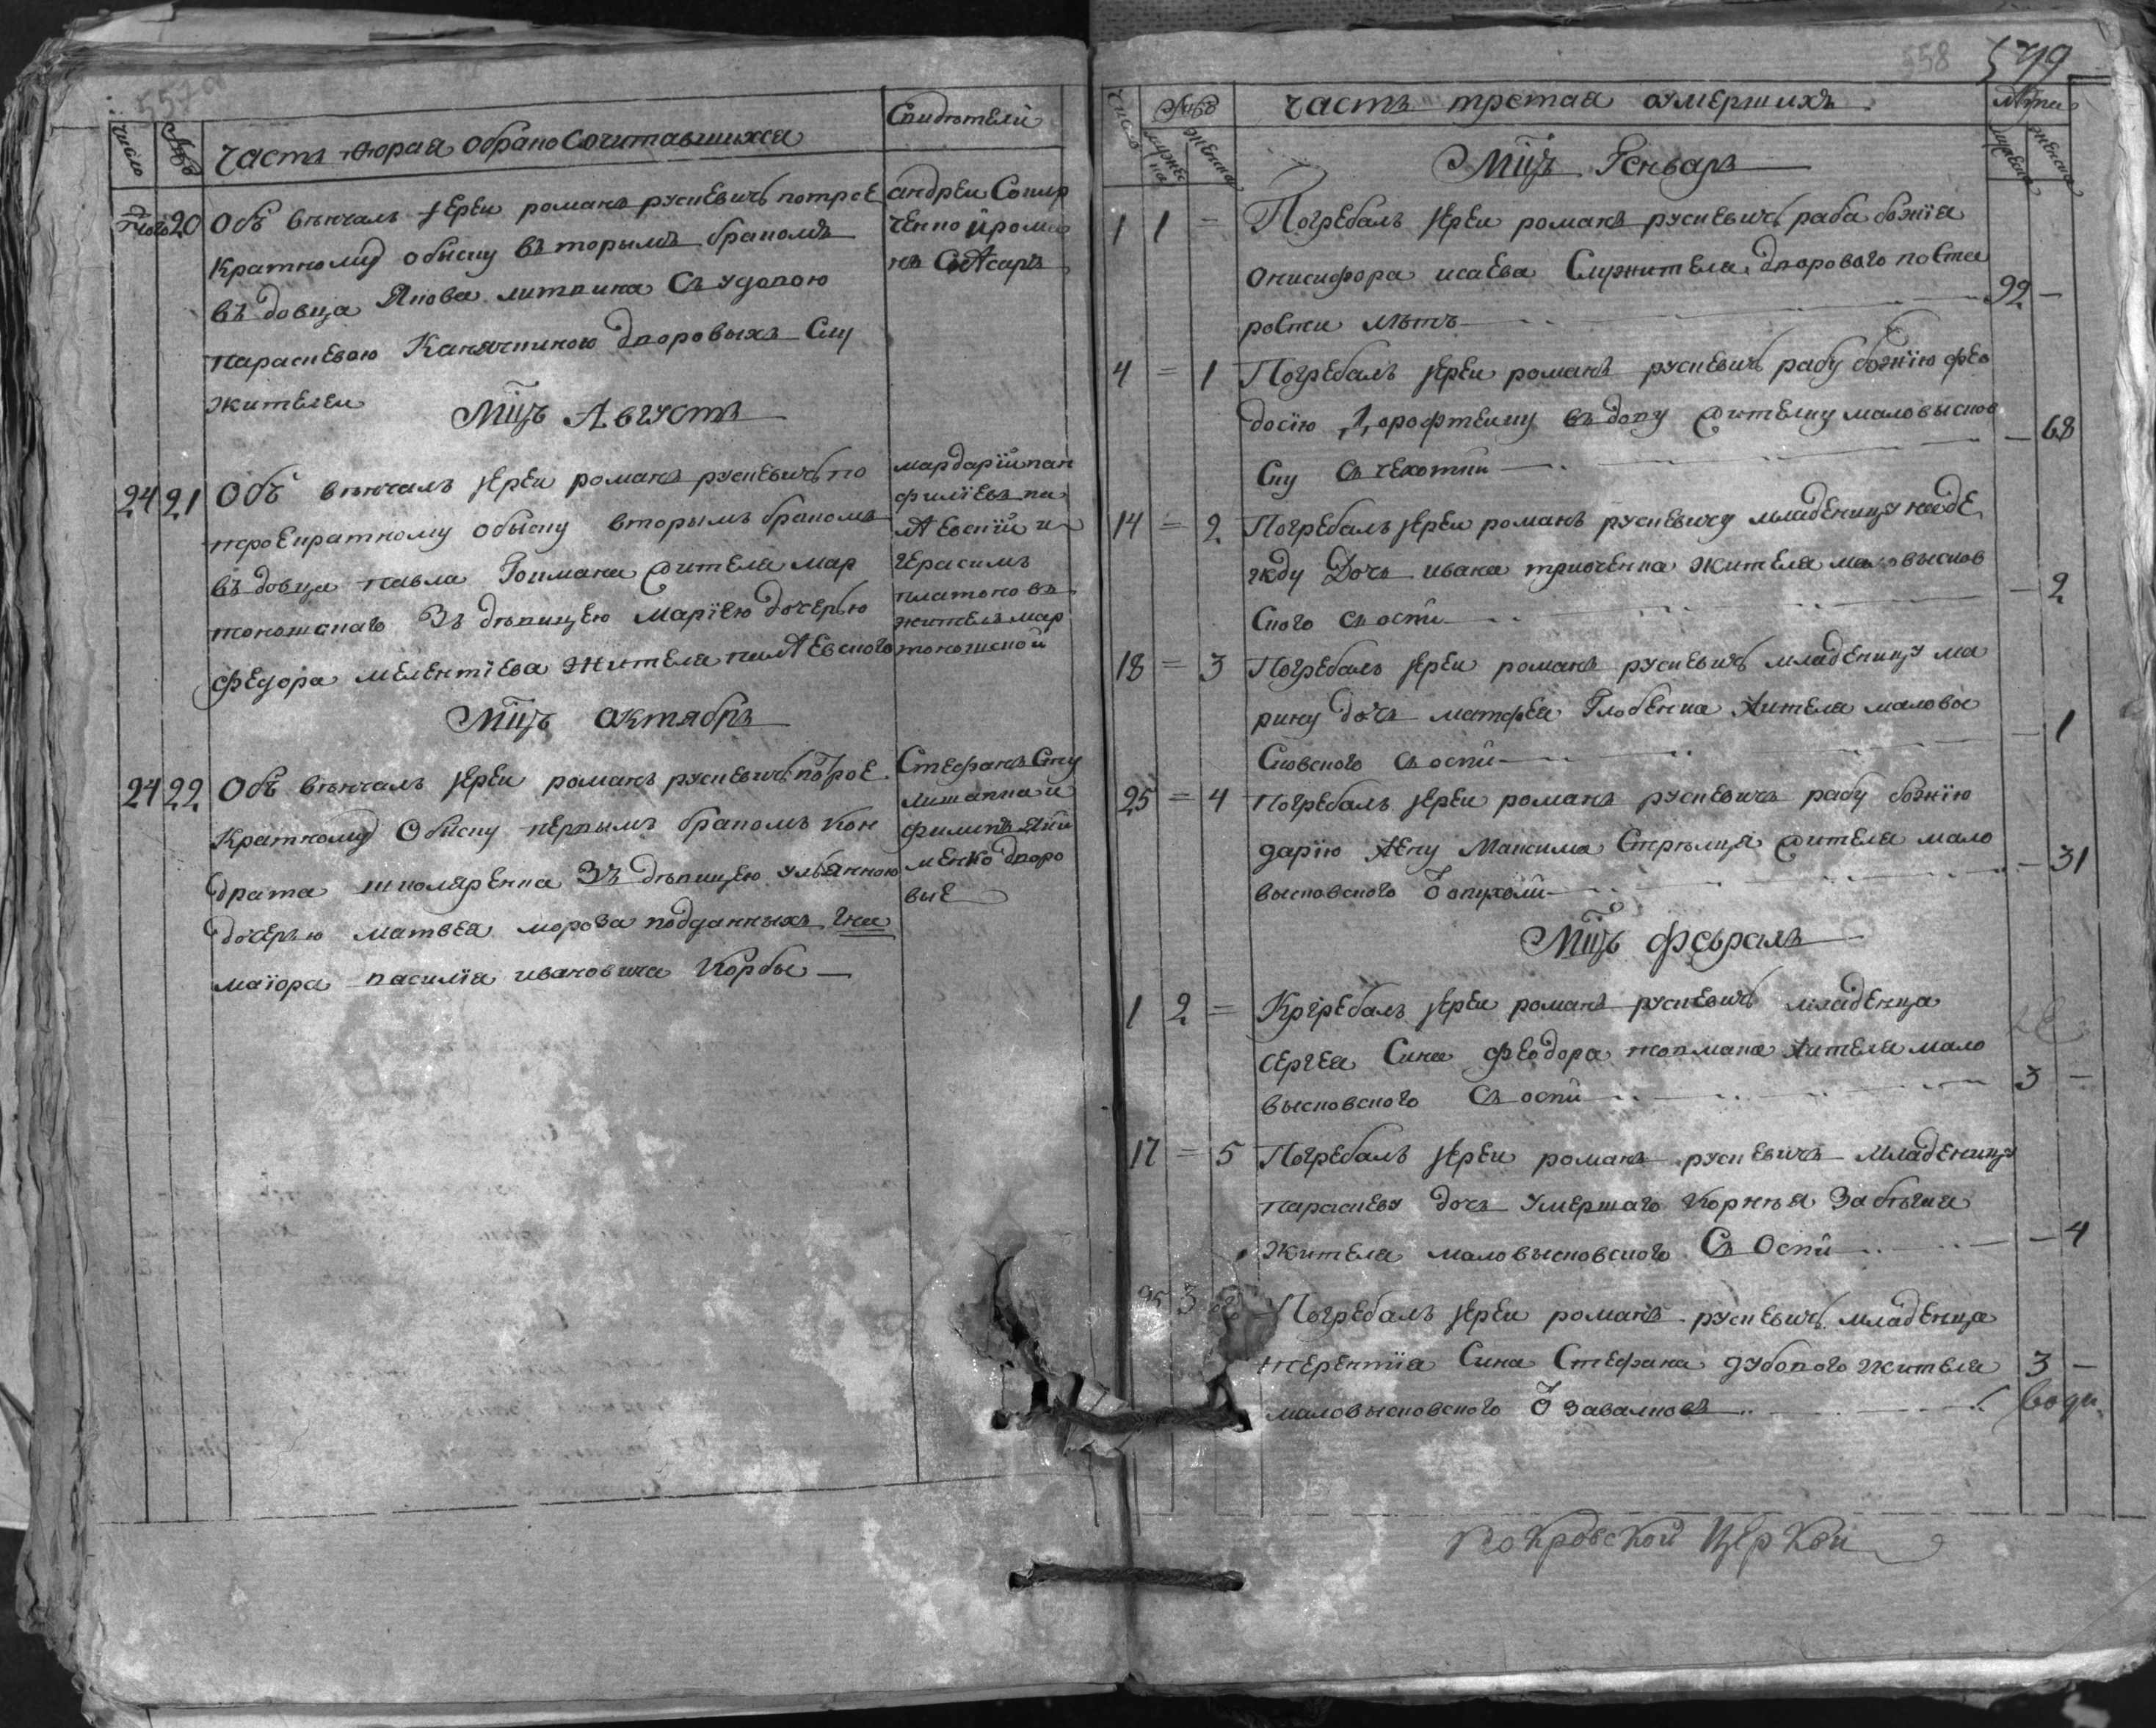 557
число
часть вторая обрако сочитавшихся
Свидѣтели
того 20 Объ вѣнчалъ иереи романъ рускевичъ потрое
кратному обыску въторымъ бракомъ
въдовца Якова литвина съ удовою
параскевою Канячкиною дворовыхъ слу
жителеи
андреи Сокир
ченко и рома
нъ
Мцъ Августъ
24 21 Объ вѣнчалъ иереи романъ рускевичъ по
троекратному обыску вторымъ бракомъ
въдовца павла Гокмана жителя мар
тоношскаго зъ дѣвицею Мариею дочерью
федора мелентиева жителя
мардарий пан
филиевъ
герасимъ
платоновъ
житель мар
тоношской
Мцъ Октябрь
24 22 Объ вѣнчалъ иереи романъ рускевичъ по трое
кратному обыску первымъ бракомъ кон
драта школяренка зъ дѣвицею ульянною
дочерью матвея мороза подданныхъ Гна
маиора василия ивановича Корбы
Стефанъ Ску
филипъ Яки
менко дворо
вые
558
579
число
мужес
ка
женска
часть третая умершихъ
лѣта
мужеска
женска
Мцъ Генварь
1 1 = Погребалъ иереи романъ рускевичъ раба божия
онисифора исаева служителя дворового по ста
рости лѣтъ 92 —
4 = 1 Погребалъ иереи романъ рускевичъ рабу божию фео
досию дорофтеиху въдову жителку маловысков
ску съ чехотки — 68
14 = 2 Погребалъ иереи романъ рускевичъ младеницу наде
жду дочь ивана жителя маловысков
ского съ оспи — 2
18 = 3 Погребалъ иереи романъ рускевичъ младеницу ма
рину дочь матфея Глобенка жителя маловы
сковского съ оспи — 1
25 = 4 Погребалъ иереи романъ рускевичъ рабу божию
дарию жену Максима Стрельця жителя мало
высковского ѿ опухоли — 31
Мцъ февраль
1 2 = Погребалъ иереи романъ рускевичъ младенца
сергея сина феодора токмака жителя мало
высковского съ оспи 3 —
17 = 5 Погребалъ иереи романъ рускевичъ младеницу
параскеву дочь умершаго корнѣя забѣгаи
жителя маловысковского съ оспи — 4
25 3 Погребалъ иереи романъ рускевичъ младенца
терентия сина Стефана дубового жителя 3 —
маловысковского ѿ завалковъ
Покровской Церкви